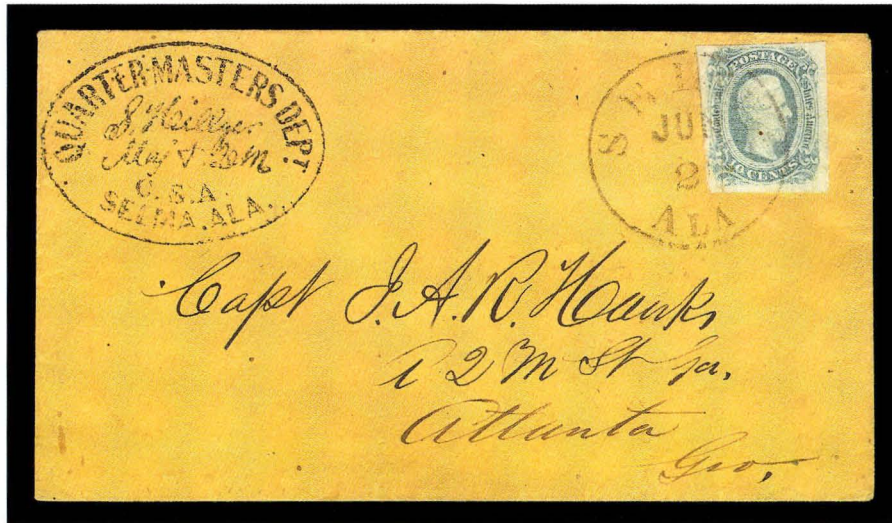 QUARTERMASTERS DEPT
S. Hillyer
Maj & QM
C.S.A.
SELMA, ALA.
JUN
2
ALA
POSTAGE
States America
10 CENTS
Capt J. A. R. Hanks
2 M St Ga.
Atlanta
Geo,